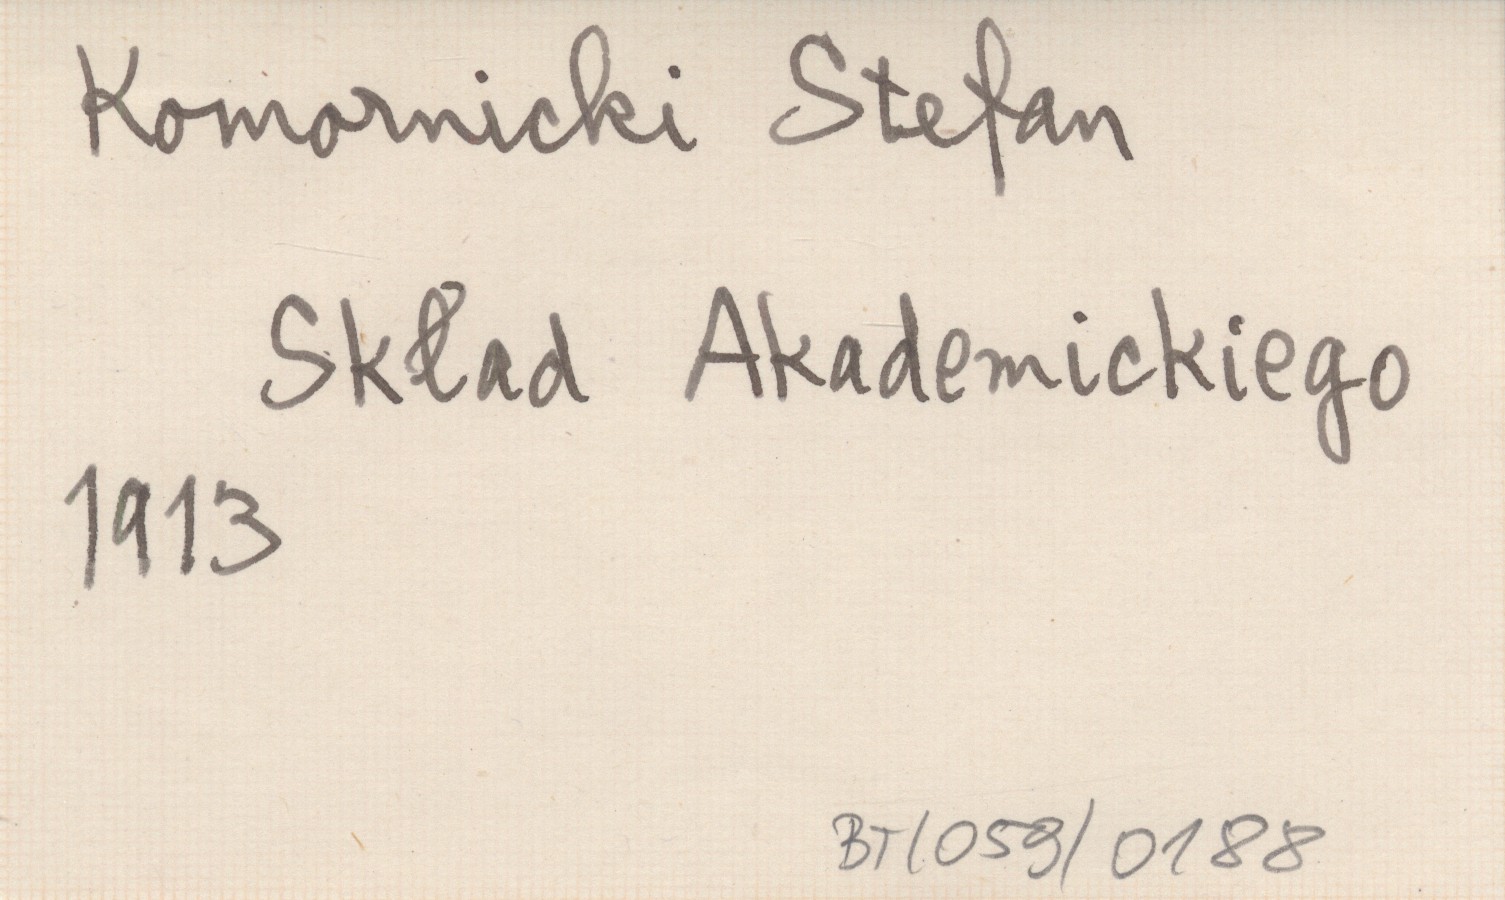 Komornicki Stefan
Skład Akademickiego
1913
BT/059/0188